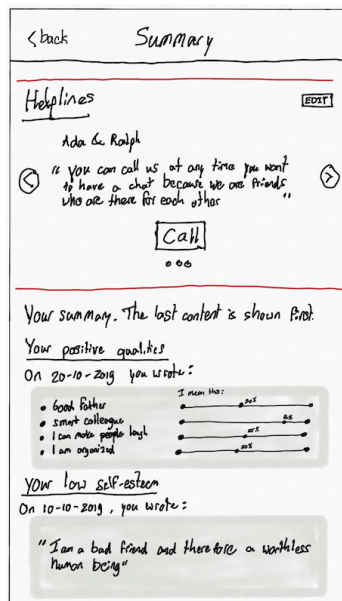 < back Summary
Helplines EDIT
Ada & Ralph
"You can call us at any time you want
to have a chat because we are friends
who are there for each other"
Call
Your summary. The last content is shown first.
Your positive qualities
On 20-10-2019 you wrote:
I mean this:
• Good father
• smart colleague
• I can make people laugh
• I am organized
50%
Your low self-esteem
On 10-10-2019, you wrote:
"I am a bad friend and therefore a worthless
human being"